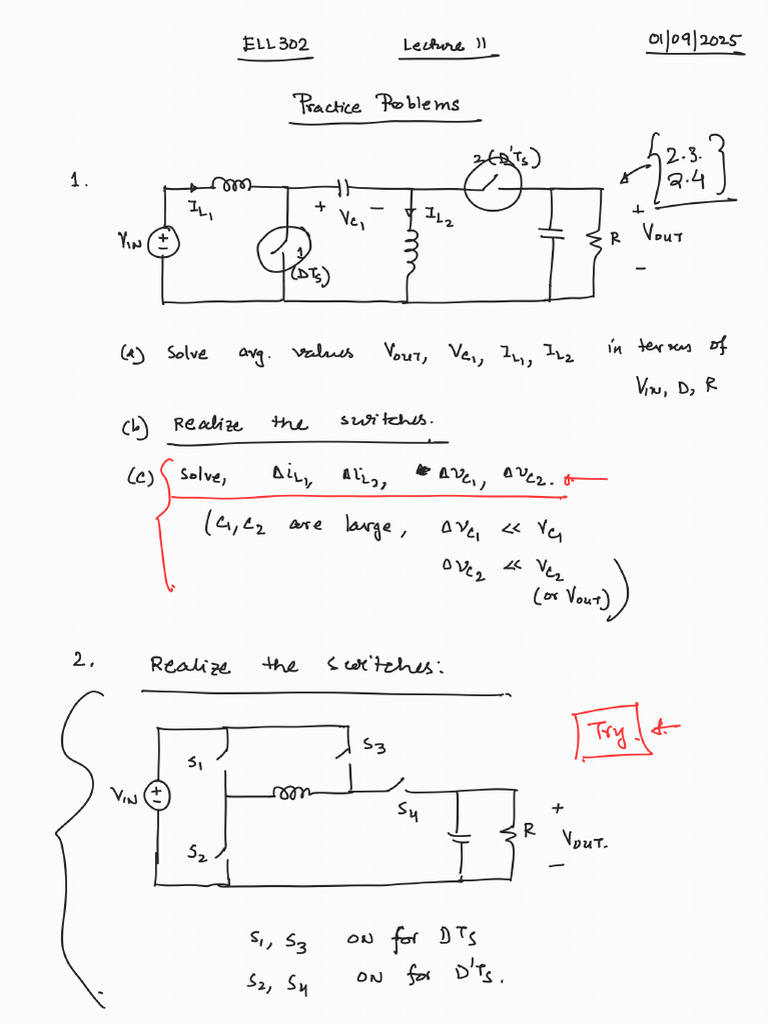 ELL302 Lecture 11 01/09/2025
Practice Problems
1.
2 (D'Ts)
2.3.
2.4
IL1
+ VC1 -
IL2
VIN
+
-
1
(DTs)
R
+
VOUT
-
(a) Solve avg. values VOUT, VC1, IL1, IL2 in terms of
VIN, D, R
(b) Realize the switches.
(c) Solve, ΔiL1, ΔiL2, ΔVC1, ΔVC2.
(C1, C2 are large, ΔVC1 << VC1
ΔVC2 << VC2
(or VOUT))
2. Realize the switches:
Try.
S1
S3
VIN
+
-
S4
S2
R
+
VOUT.
-
S1, S3 ON for DTs
S2, S4 ON for D'Ts.